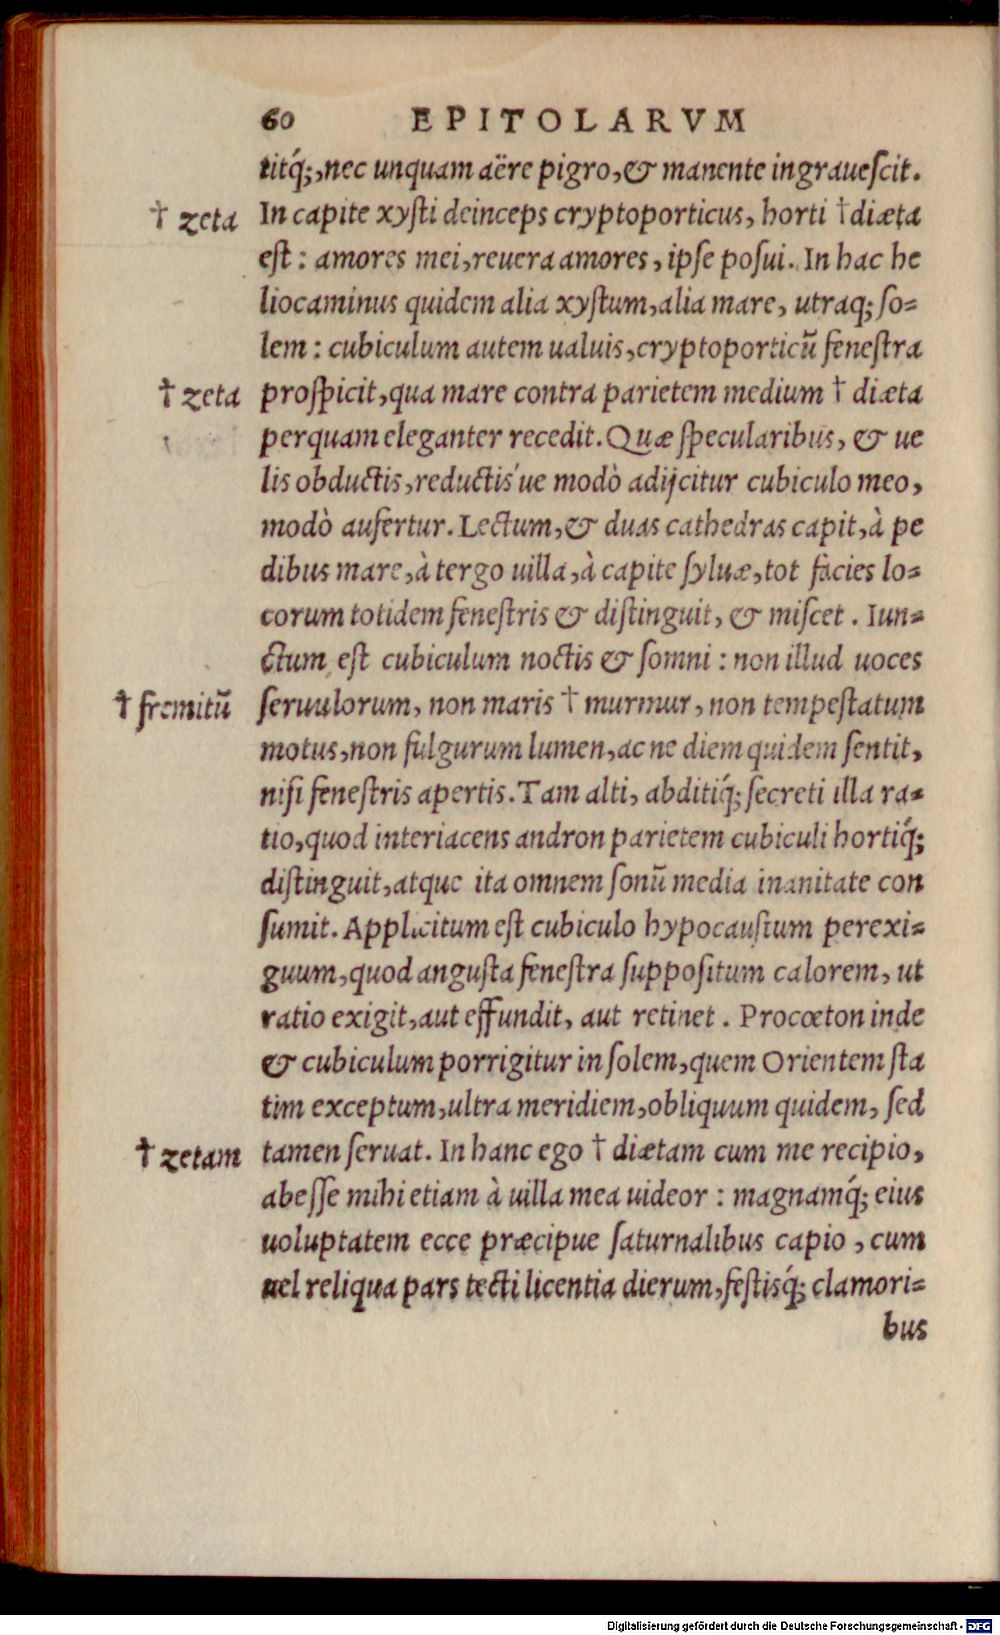 60 EPITOLARVM
titq́;, nec unquam aëre pigro, & manente ingrauescit.
† zeta In capite xysti deinceps cryptoporticus, horti † diæta
est : amores mei, reuera amores, ipse posui. In hac he
liocaminus quidem alia xystum, alia mare, utraq; so-
lem : cubiculum autem ualuis, cryptoporticū fenestra
† zeta prospicit, qua mare contra parietem medium † diæta
perquam eleganter recedit. Quæ specularibus, & ue
lis obductis, reductis´ue modò adijcitur cubiculo meo,
modò aufertur. Lectum, & duas cathedras capit, à pe
dibus mare, à tergo uilla, à capite syluæ, tot facies lo-
corum totidem fenestris & distinguit, & miscet. Iun-
ctum est cubiculum noctis & somni : non illud uoces
† fremitū seruulorum, non maris † murmur, non tempestatum
motus, non fulgurum lumen, ac ne diem quidem sentit,
nisi fenestris apertis. Tam alti, abditiq́; secreti illa ra-
tio, quod interiacens andron parietem cubiculi hortiq́;
distinguit, atque ita omnem sonū media inanitate con
sumit. Applicitum est cubiculo hypocaustum perexi-
guum, quod angusta fenestra suppositum calorem, ut
ratio exigit, aut effundit, aut retinet. Procœton inde
& cubiculum porrigitur in solem, quem Orientem sta
tim exceptum, ultra meridiem, obliquum quidem, sed
† zetam tamen seruat. In hanc ego † diætam cum me recipio,
abesse mihi etiam à uilla mea uideor : magnamq́; eius
uoluptatem ecce præcipue saturnalibus capio, cum
uel reliqua pars tecti licentia dierum, festisq́; clamori-
bus
Digitalisierung gefördert durch die Deutsche Forschungsgemeinschaft - DFG